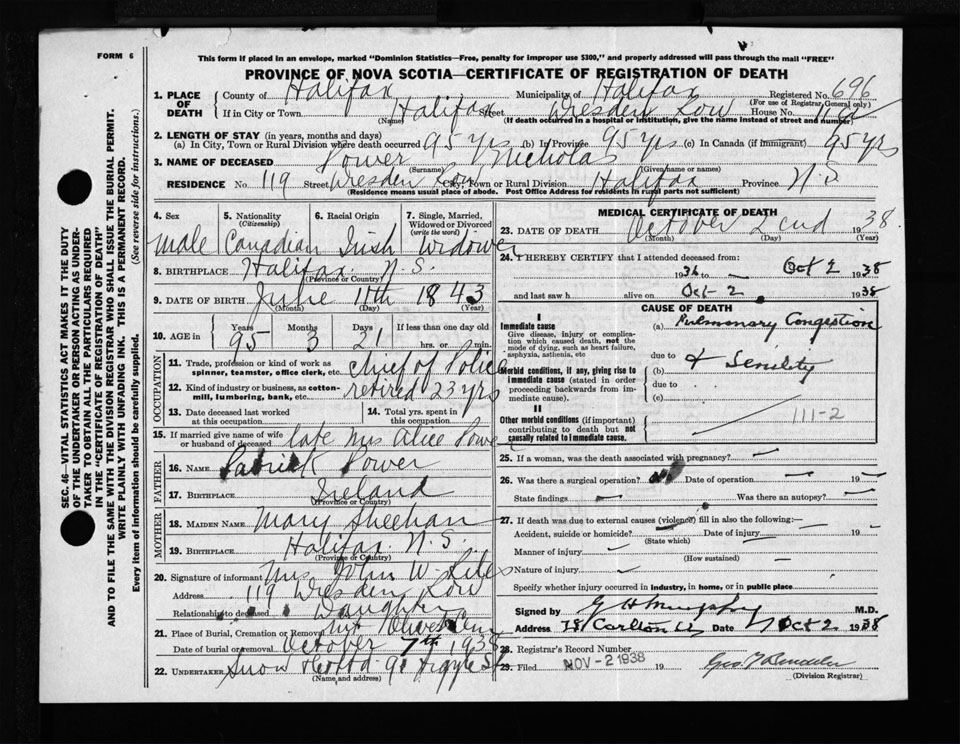 FORM 6
This form if placed in an envelope, marked "Dominion Statistics—Free, penalty for improper use $300," and properly addressed will pass through the mail "FREE"
PROVINCE OF NOVA SCOTIA—CERTIFICATE OF REGISTRATION OF DEATH
1. PLACE OF DEATH
County of Halifax Municipality of Halifax Registered No. 696
(For use of Registrar General only)
If in City or Town Halifax Street Dresden Row House No. 119
(Name) (If death occurred in a hospital or institution, give the name instead of street and number)
2. LENGTH OF STAY (in years, months and days)
(a) In City, Town or Rural Division where death occurred 95 yrs (b) In Province 95 yrs (c) In Canada (if immigrant) 95 yrs
3. NAME OF DECEASED Power Nicholas
(Surname) (Given name or names)
RESIDENCE No. 119 Street Dresden Row City, Town or Rural Division Halifax Province N.S.
(Residence means usual place of abode. Post Office Address for residents in rural parts not sufficient)
4. Sex
male
5. Nationality
(Citizenship)
Canadian
6. Racial Origin
Irish
7. Single, Married, Widowed or Divorced
(write the word)
Widower
8. BIRTHPLACE Halifax N.S.
(Province or Country)
9. DATE OF BIRTH June 11th 1843
(Month) (Day) (Year)
10. AGE in
Years Months Days If less than one day old
95 3 21 hrs. or min.
OCCUPATION
11. Trade, profession or kind of work as spinner, teamster, office clerk, etc. chief of Police
12. Kind of industry or business, as cotton-mill, lumbering, bank, etc. retired 23 yrs
13. Date deceased last worked at this occupation
14. Total yrs. spent in this occupation
15. If married give name of wife or husband of deceased late Mrs Alice Power
FATHER
16. NAME Patrick Power
17. BIRTHPLACE Ireland
(Province or Country)
MOTHER
18. MAIDEN NAME Mary Sheehan
19. BIRTHPLACE Halifax N.S.
(Province or Country)
20. Signature of informant Mrs John W.
Address 119 Dresden Row
Relationship to deceased Daughter
21. Place of Burial, Cremation or Removal Mt Olivet Cem
Date of burial or removal October 7th 1938
22. UNDERTAKER Snow 90 Argyle St
(Name and address)
MEDICAL CERTIFICATE OF DEATH
23. DATE OF DEATH October 2cnd 1938.
(Month) (Day) (Year)
24. I HEREBY CERTIFY that I attended deceased from:
1936 to — Oct 2 1938
and last saw h alive on Oct-2 1938
CAUSE OF DEATH
I
Immediate cause
Give disease, injury or complication which caused death, not the mode of dying, such as heart failure, asphyxia, asthenia, etc
(a) Pulmonary Congestion
due to
Morbid conditions, if any, giving rise to immediate cause (stated in order proceeding backwards from immediate cause).
(b) & Senility
due to
(c)
II
Other morbid conditions (if important) contributing to death but not causally related to immediate cause.
111-2
25. If a woman, was the death associated with pregnancy? —
26. Was there a surgical operation? no Date of operation — 19
State findings — Was there an autopsy? —
27. If death was due to external causes (violence) fill in also the following:—
Accident, suicide or homicide? — Date of injury — 19
(State which)
Manner of injury — (How sustained) —
Nature of injury —
Specify whether injury occurred in industry, in home, or in public place
Signed by G H Murphy M.D.
Address 78 Carlton St Date Oct 2 1938
28. Registrar's Record Number
29. Filed NOV -2 1938 19
(Division Registrar)
SEC. 46—VITAL STATISTICS ACT MAKES IT THE DUTY OF THE UNDERTAKER OR PERSON ACTING AS UNDERTAKER TO OBTAIN ALL THE PARTICULARS REQUIRED IN THE "CERTIFICATE OF REGISTRATION OF DEATH"
AND TO FILE THE SAME WITH THE DIVISION REGISTRAR WHO SHALL ISSUE THE BURIAL PERMIT.
WRITE PLAINLY WITH UNFADING INK. THIS IS A PERMANENT RECORD.
Every item of information should be carefully supplied. (See reverse side for instructions.)